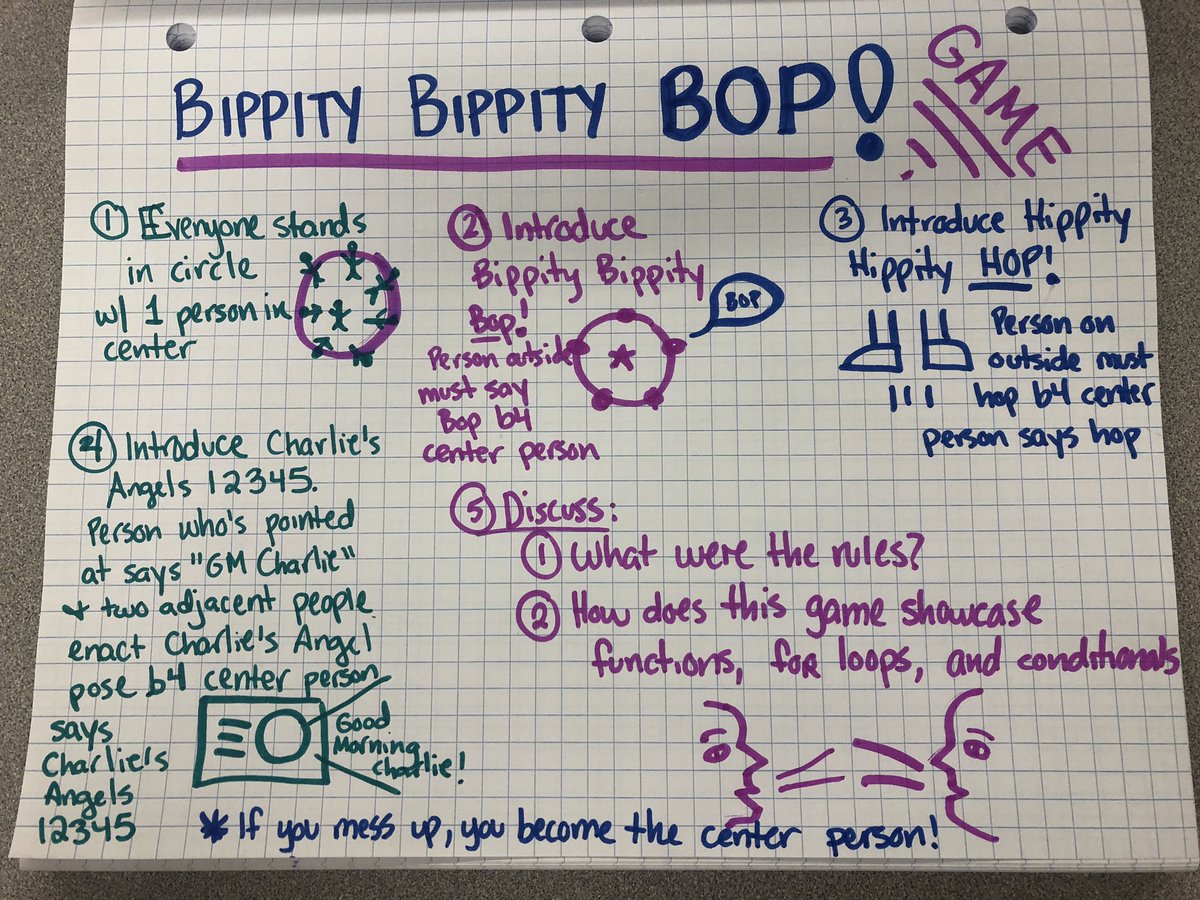 BIPPITY BIPPITY BOP!
GAME
① Everyone stands
in circle
w/ 1 person in
center
② Introduce
Bippity Bippity
Bop!
Person outside
must say
Bop b4
center person
BOP
③ Introduce Hippity
Hippity HOP!
Person on
outside must
hop b4 center
person says hop
④ Introduce Charlie's
Angels 12345.
Person who's pointed
at says "GM Charlie"
+ two adjacent people
enact Charlie's Angel
pose b4 center person
says
Charlie's
Angels
12345
Good
Morning
Charlie!
⑤ Discuss:
① What were the rules?
② How does this game showcase
functions, for loops, and conditionals
* If you mess up, you become the center person!